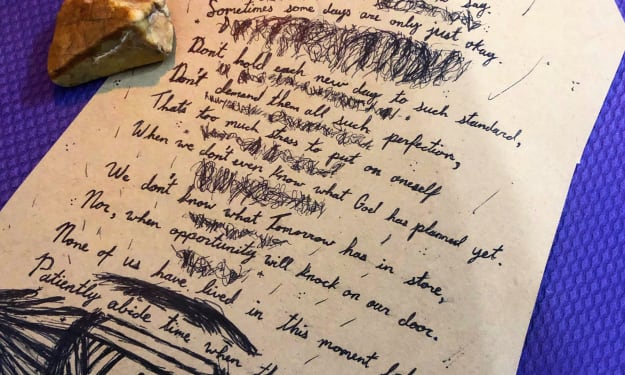 say.
Sometimes some days are only just okay.
Don't hold each new day to such standard,
Don't demand them all such perfection,
Thats too much stress to put on oneself
When we don't even know what God has planned yet.
We don't know what Tomorrow has in store,
Nor, when opportunity will knock on our door.
None of us have lived in this moment
Patiently abide time when